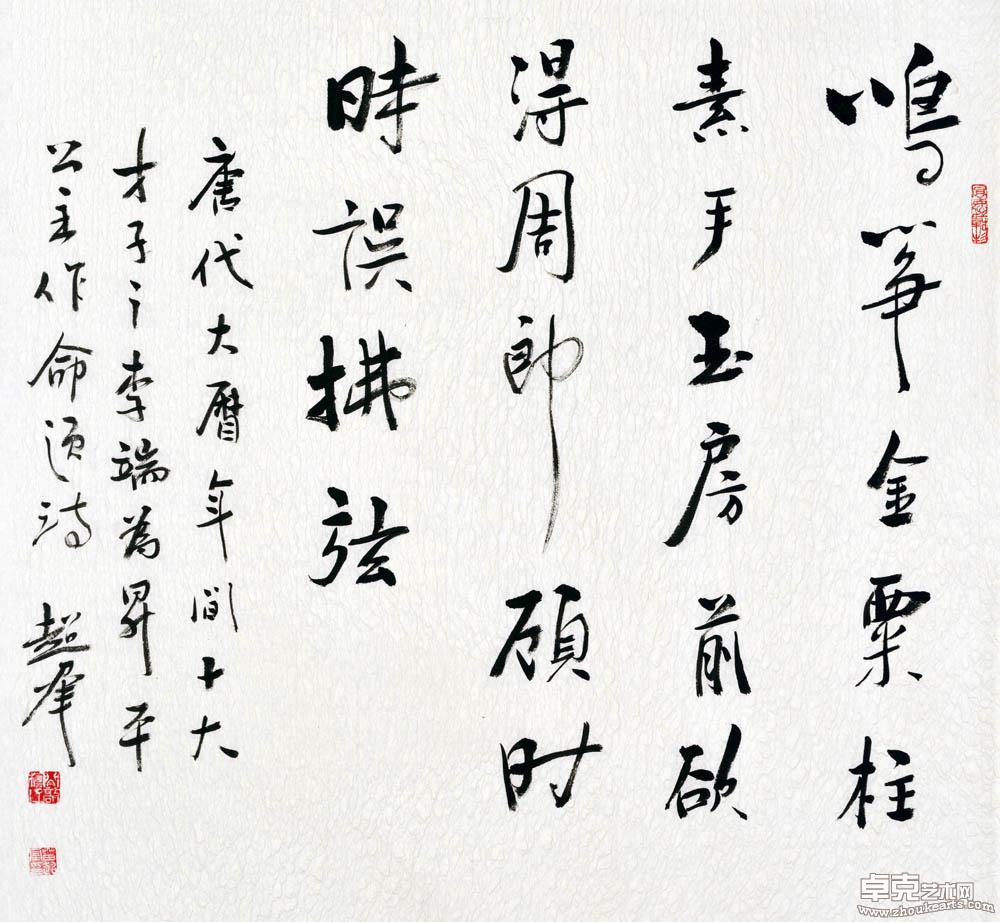 鳴箏金粟柱
素手玉房前欲
得周郎顧时
時誤拂弦
唐代大曆年間十大
才子之李端為昇平
公主作命題詩 超峰
卓克艺术网
www.zhoukearts.com